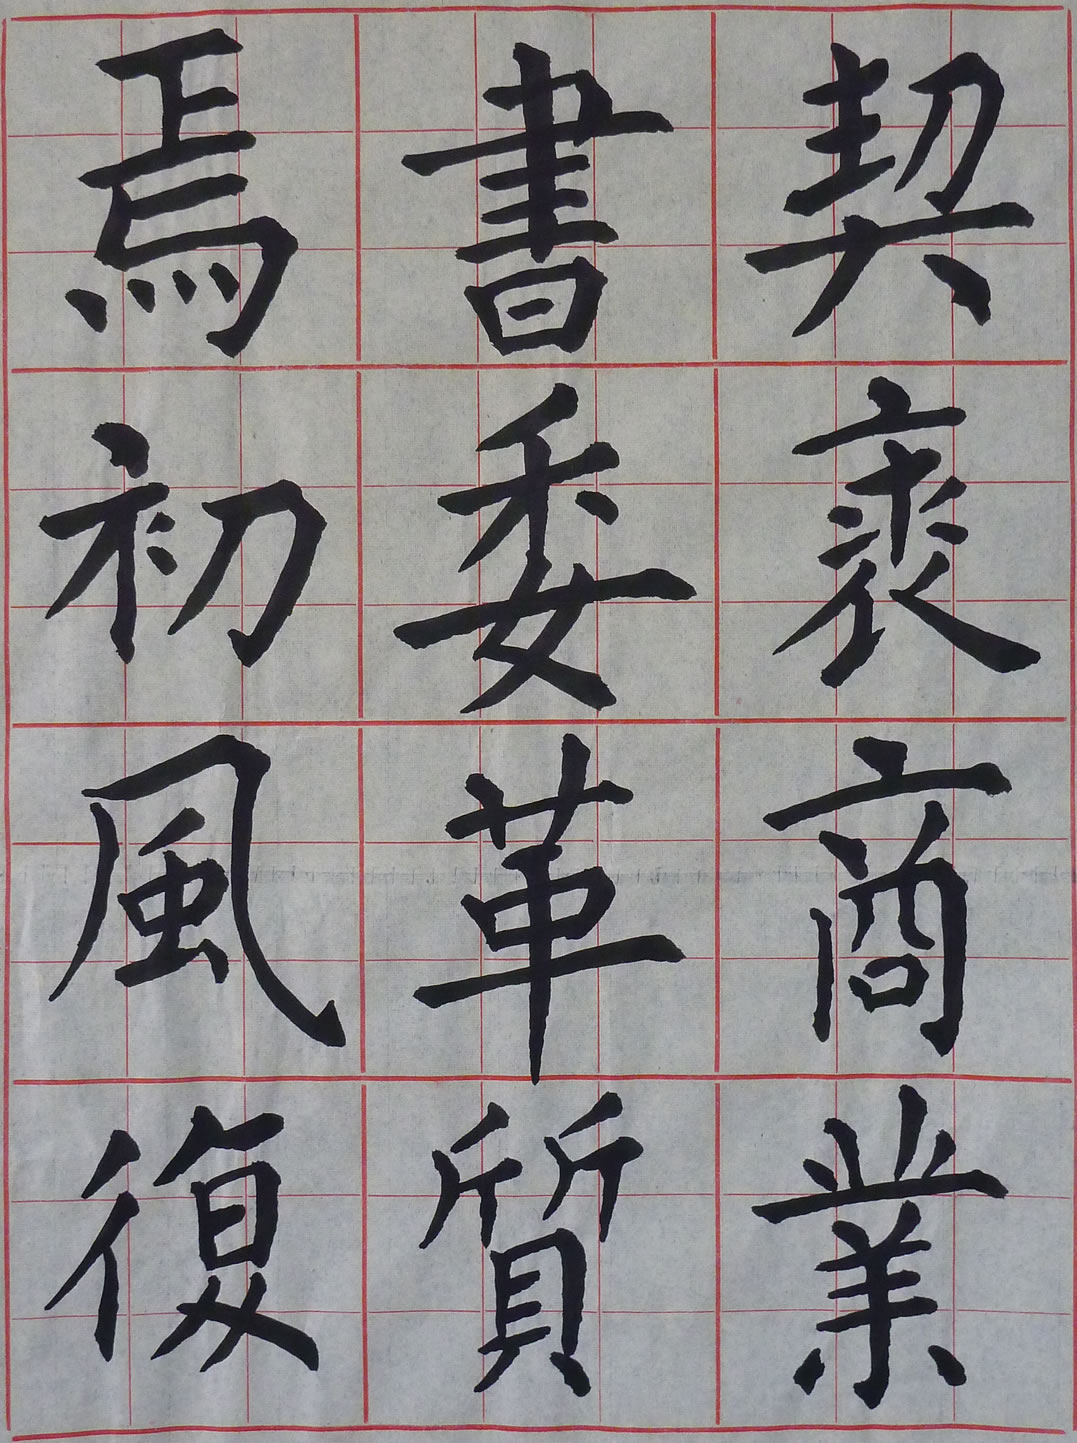 契裘商業
書委革質
焉初風復